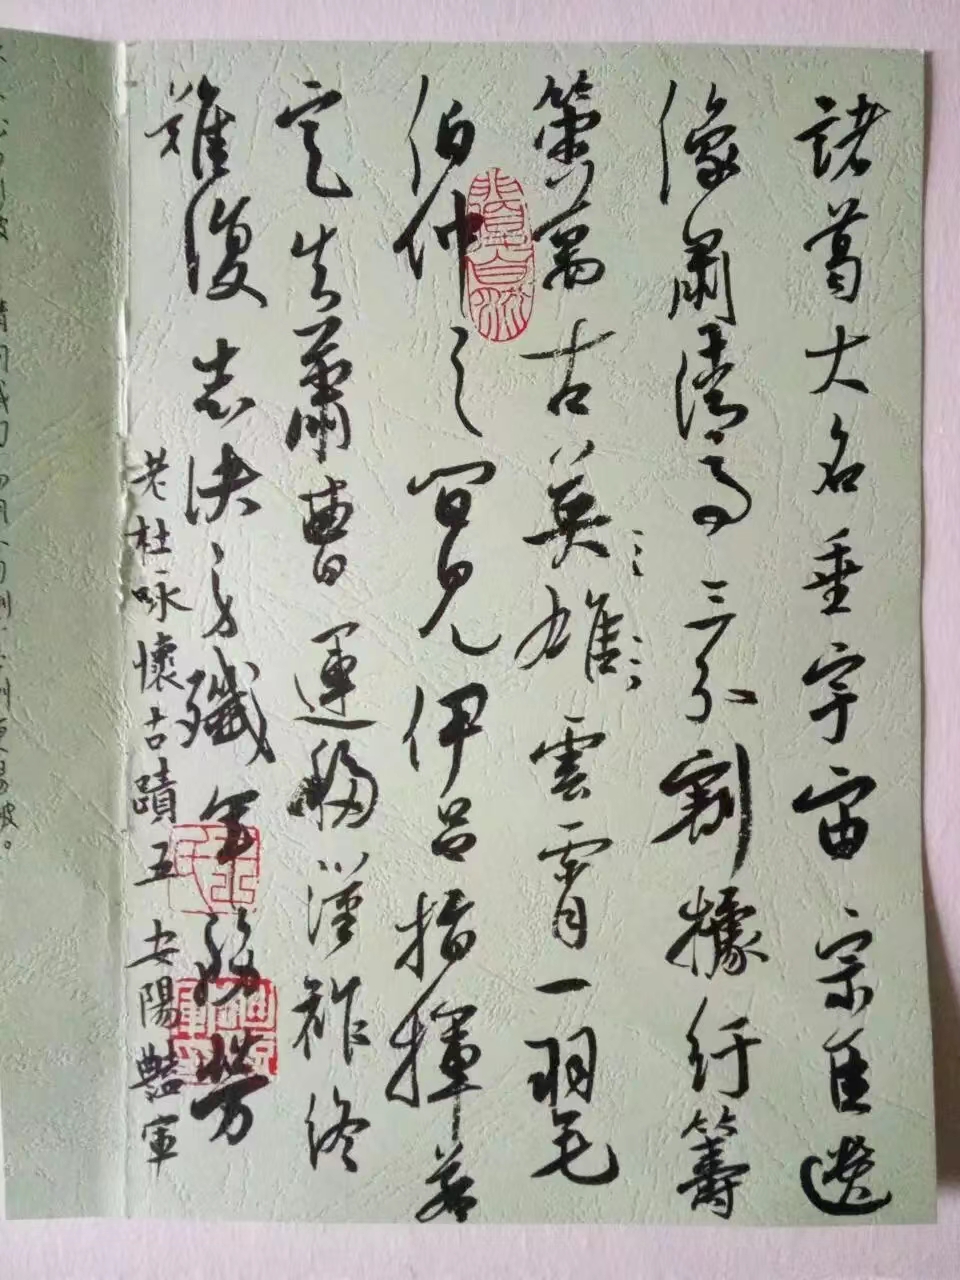 諸葛大名垂宇宙宗臣遺
像肅清高三分割據紆籌
策萬古英雄雲霄一羽毛
伯仲之間見伊呂指揮若
定失蕭曹運移漢祚終
難復志決身殲軍務勞
老杜咏懷古蹟五 安陽軍